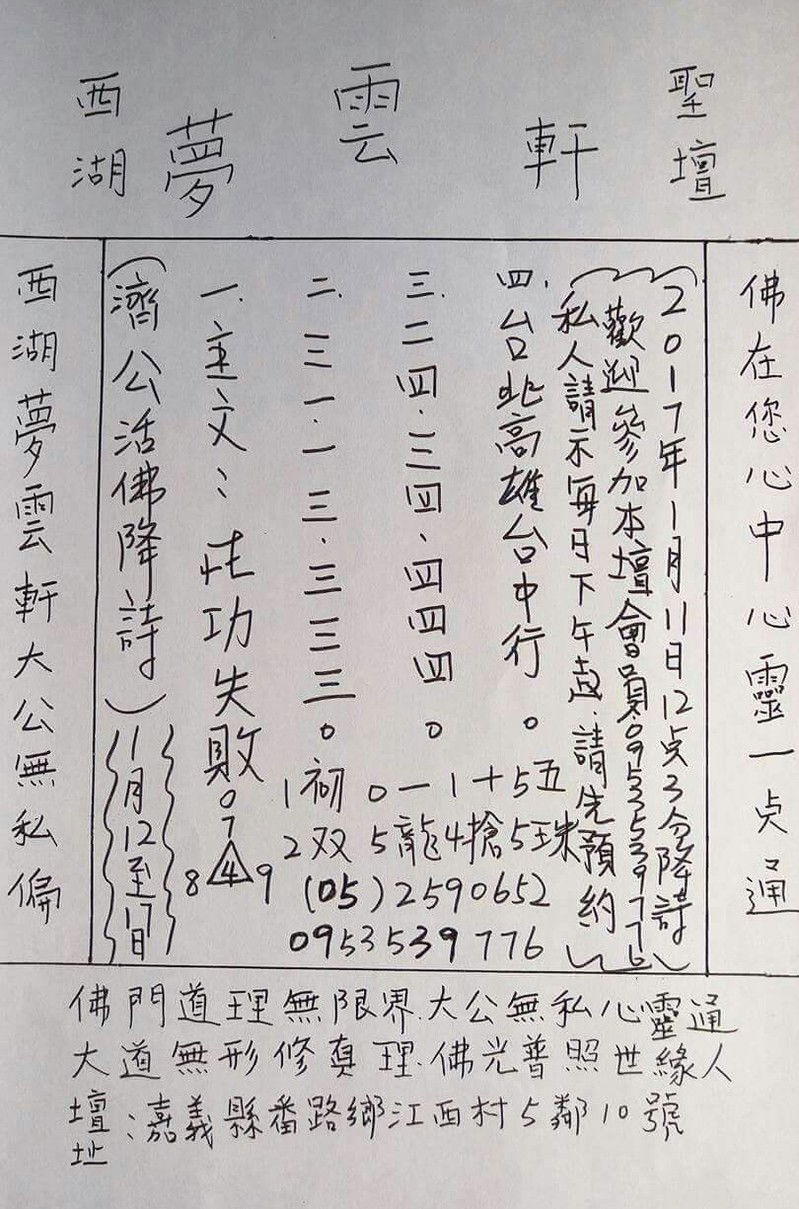 西湖 夢雲軒 聖壇
西湖夢雲軒大公無私偏
(濟公活佛降詩) 11月12至17日
一.主文:功失敗
二.三一.一三.三三三。
三.二四.三四.四四四。
四.台北高雄台中行。
0
7
8 4 9
1初 0一 1十 5五
2双 5龍 4搶 5珠
(05)2590652
0953539776
私人請示每日下午起.請先預約
歡迎參加本壇會員0953539776
2017年1月11日12点3分降詩
佛在您心中心靈一点通
佛門道理無限界.大公無私心靈通
大道無形修真理.佛光普照世緣人
壇址:嘉義縣番路鄉江西村5鄰10號